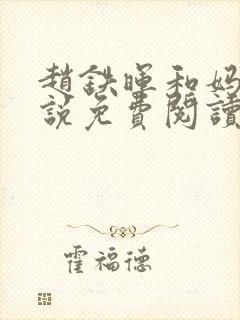 趙鉄暉和妈
説免費閱讀
霍福德